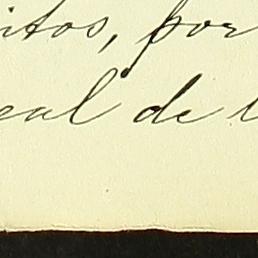 itos, por
eal de